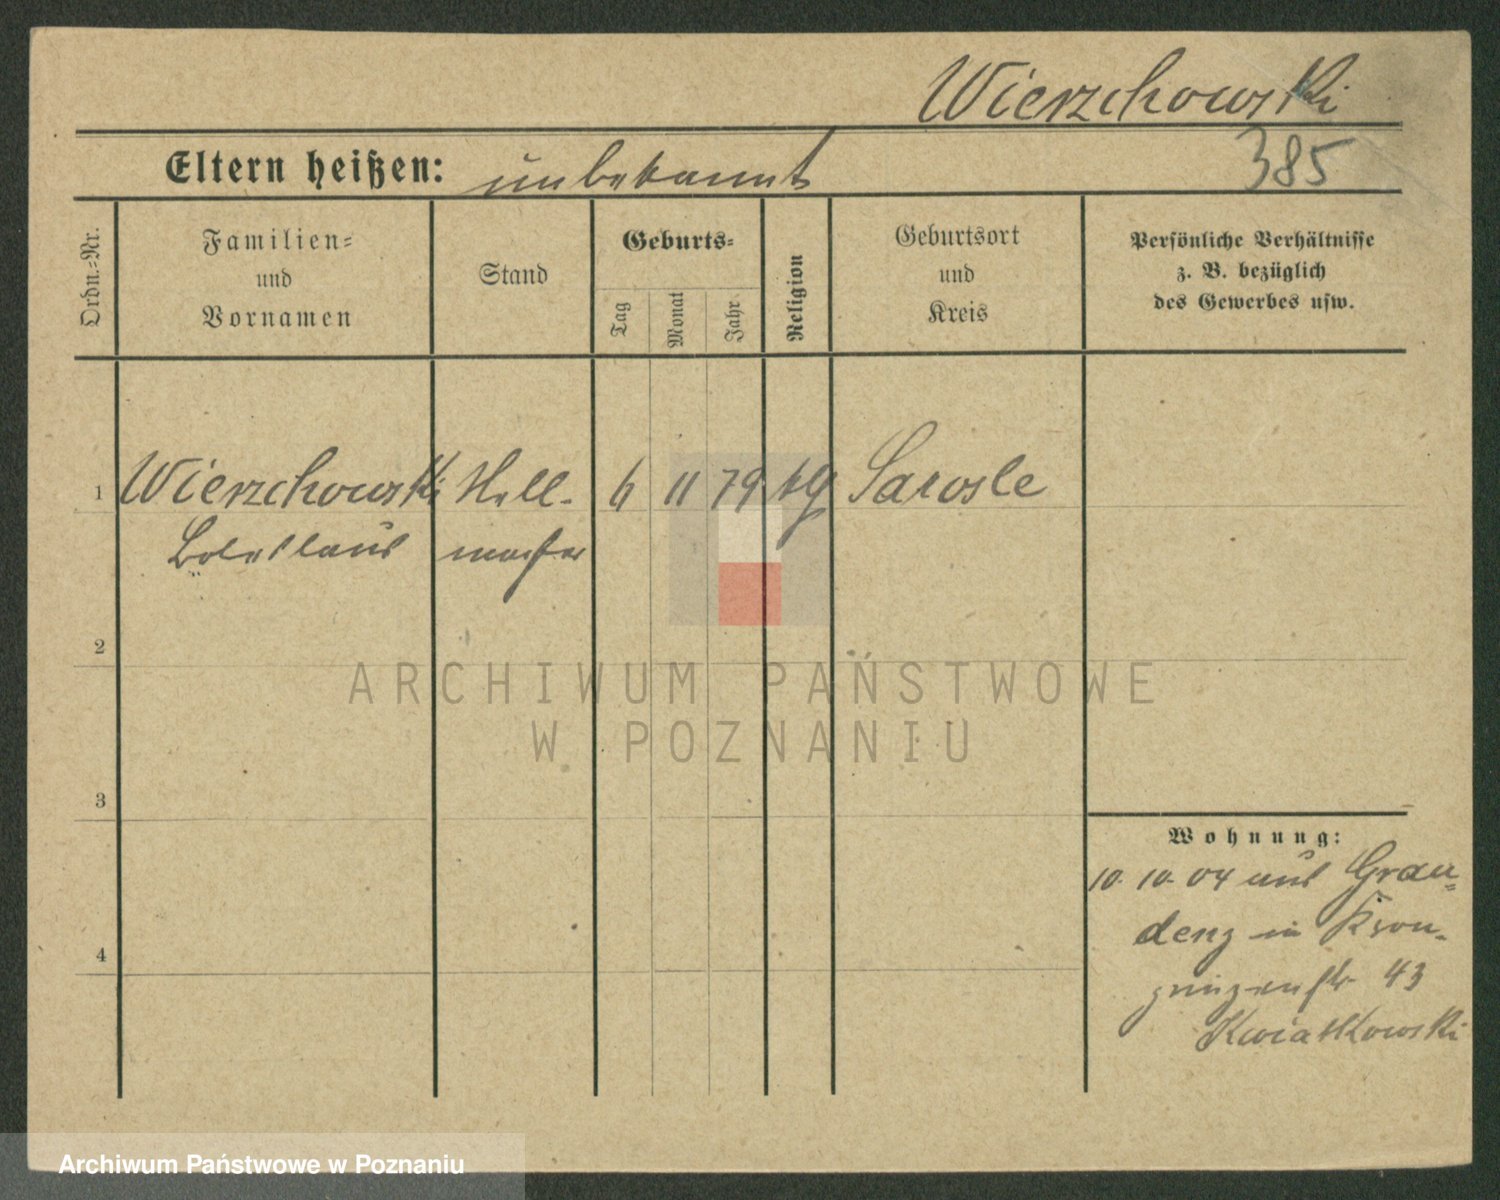 Wierzchowski
Eltern heißen: unbekannt
385
Ordn.-Nr.
Familien-
und
Vornamen
Stand
Geburts-
Tag
Monat
Jahr
Religion
Geburtsort
und
Kreis
Persönliche Verhältnisse
z. B. bezüglich
des Gewerbes usw.
1 Wierzchowski Stell- 6 11 79 kg Sarosle
Boleslaus macher
2
ARCHIWUM PAŃSTWOWE
W POZNANIU
3
Wohnung:
10. 10. 04 aus Grau-
4
denz in Kron-
prinzenstr 43
Kwiatkowski
Archiwum Państwowe w Poznaniu